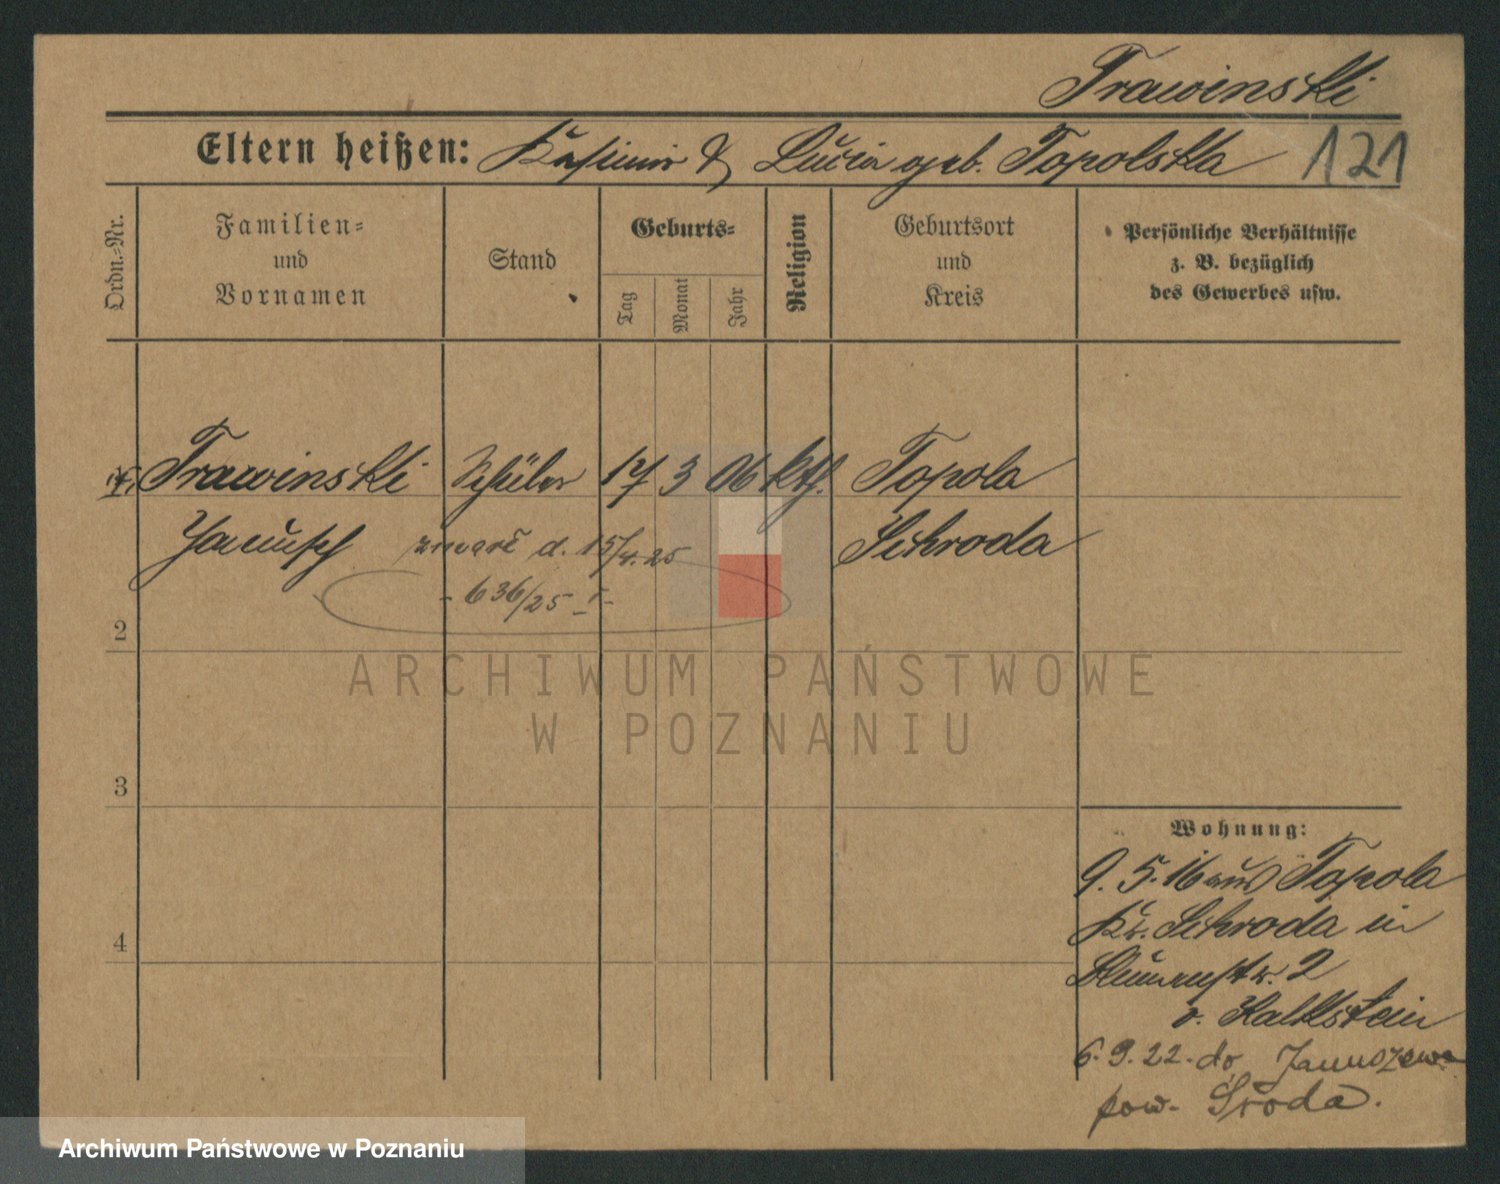 Trawinski
Eltern heißen: Kasimir & Lucia geb. Topolska 121
Ordn.-Nr.
Familien-
und
Vornamen
Stand
Geburts-
Tag
Monat
Jahr
Religion
Geburtsort
und
Kreis
Persönliche Verhältnisse
z. B. bezüglich
des Gewerbes usw.
Trawinski Schüler 17 3 06 kth. Topola
Janusch d. 15/4.25 Schroda
- 636/25 - I -
2
3
4
ARCHIWUM PAŃSTWOWE
W POZNANIU
Wohnung:
9. 5. 16 aus Topola
Kr. Schroda in
Blumenstr. 2
v. Kalkstein
6. 9. 22. do Januszewa
pow. Środa.
Archiwum Państwowe w Poznaniu